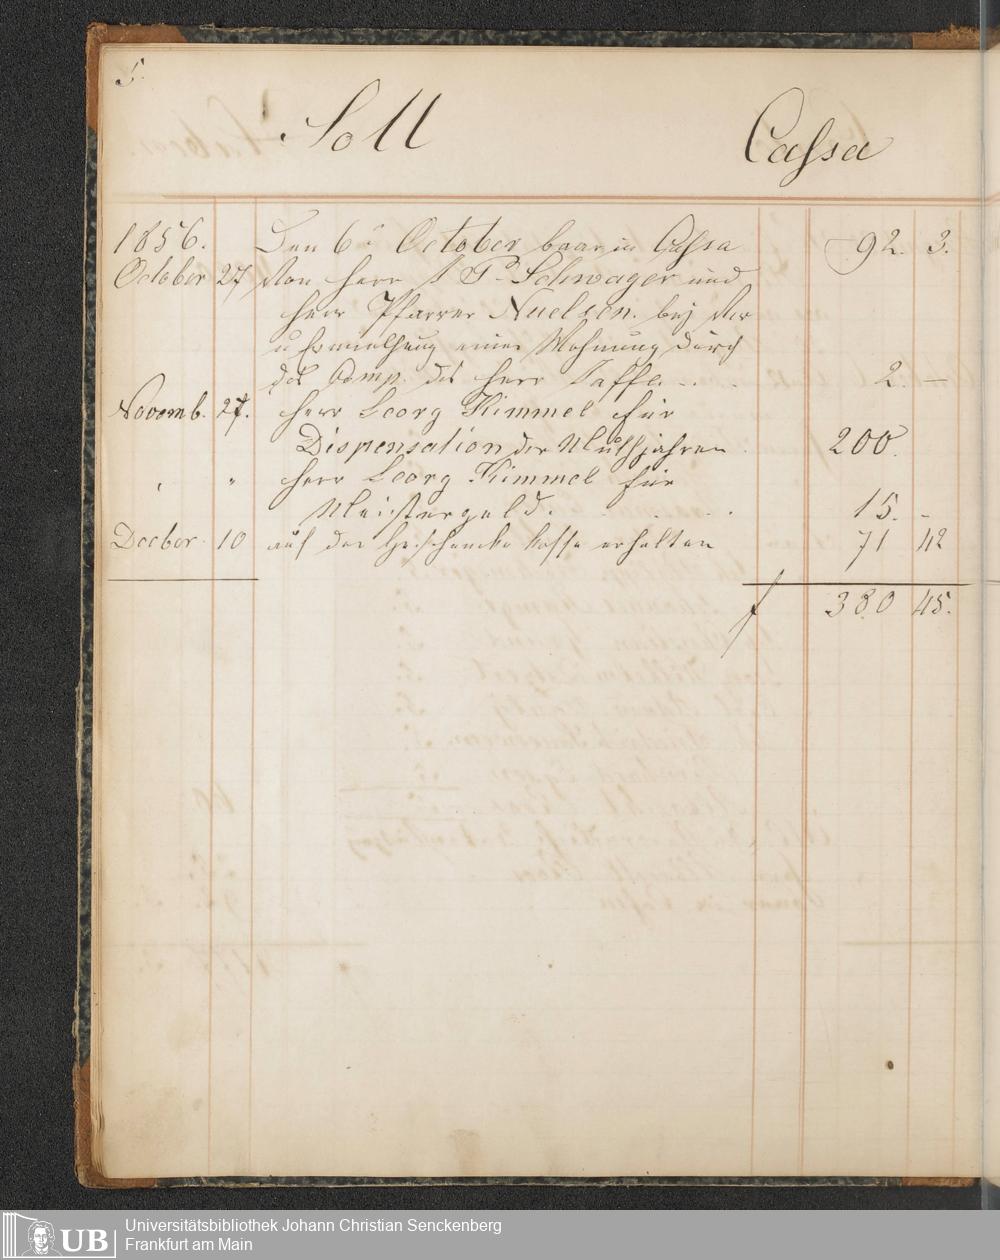 5.
Soll Cassa
1856. Den 6n October baar in Cassa 92. 3.
October 27 Von Herr Schwager und
Herr Pfarrer Nuelsen. bej Ver
einer Wohnung durch
das Comp. des Herr Jaffe. . . . 2. —
Novemb. 27. Herr Georg Kimmel für
Dispensation der Muthjahren . 200.
" " Herr Georg Kimmel für
Meistergeld. . . . . 15. -
Decbor 10 aus der Geschenke Kasse erhalten 71 42
f 380 45.
UB
Universitätsbibliothek Johann Christian Senckenberg
Frankfurt am Main